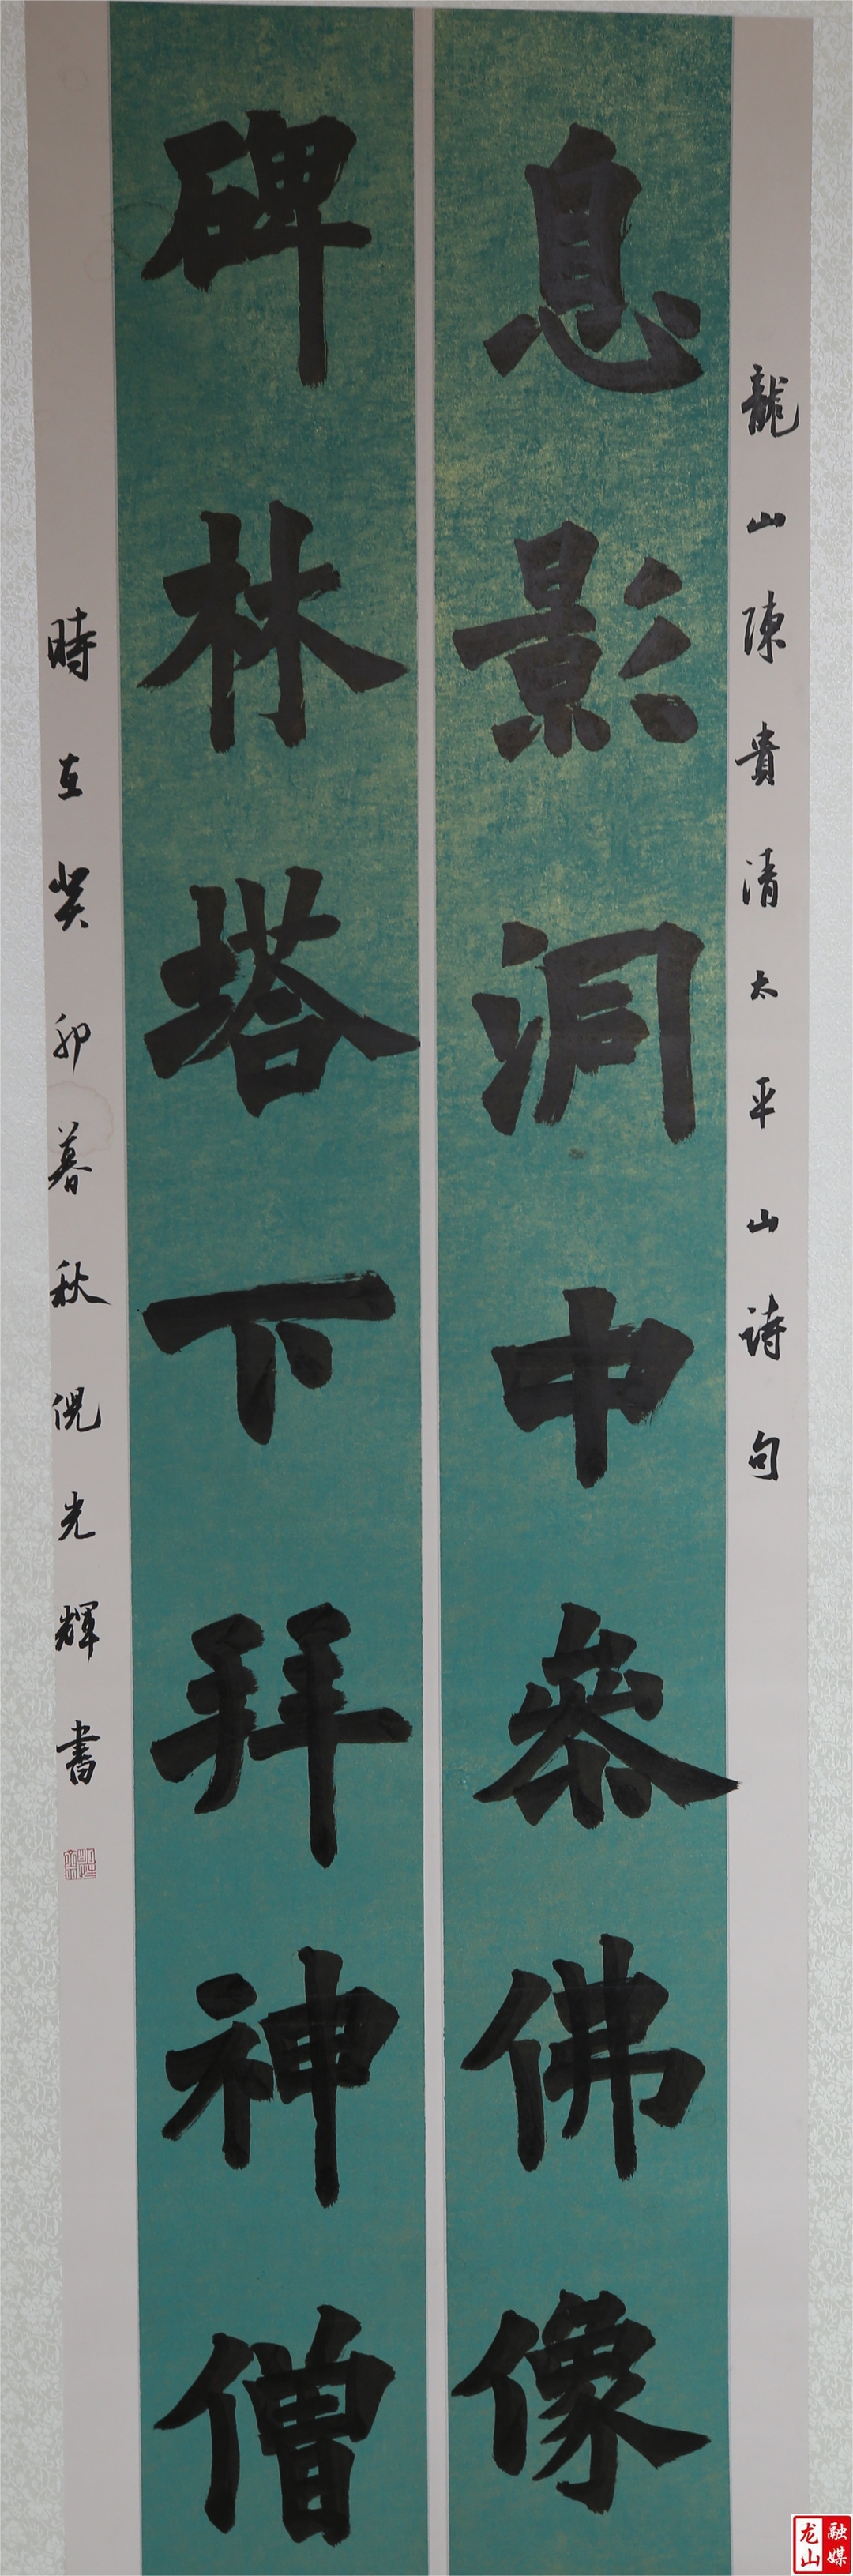 龍山陳貴清太平山诗句
息影洞中叅佛像
碑林塔下拜神僧
時在癸卯暮秋倪光輝書
龙山融媒